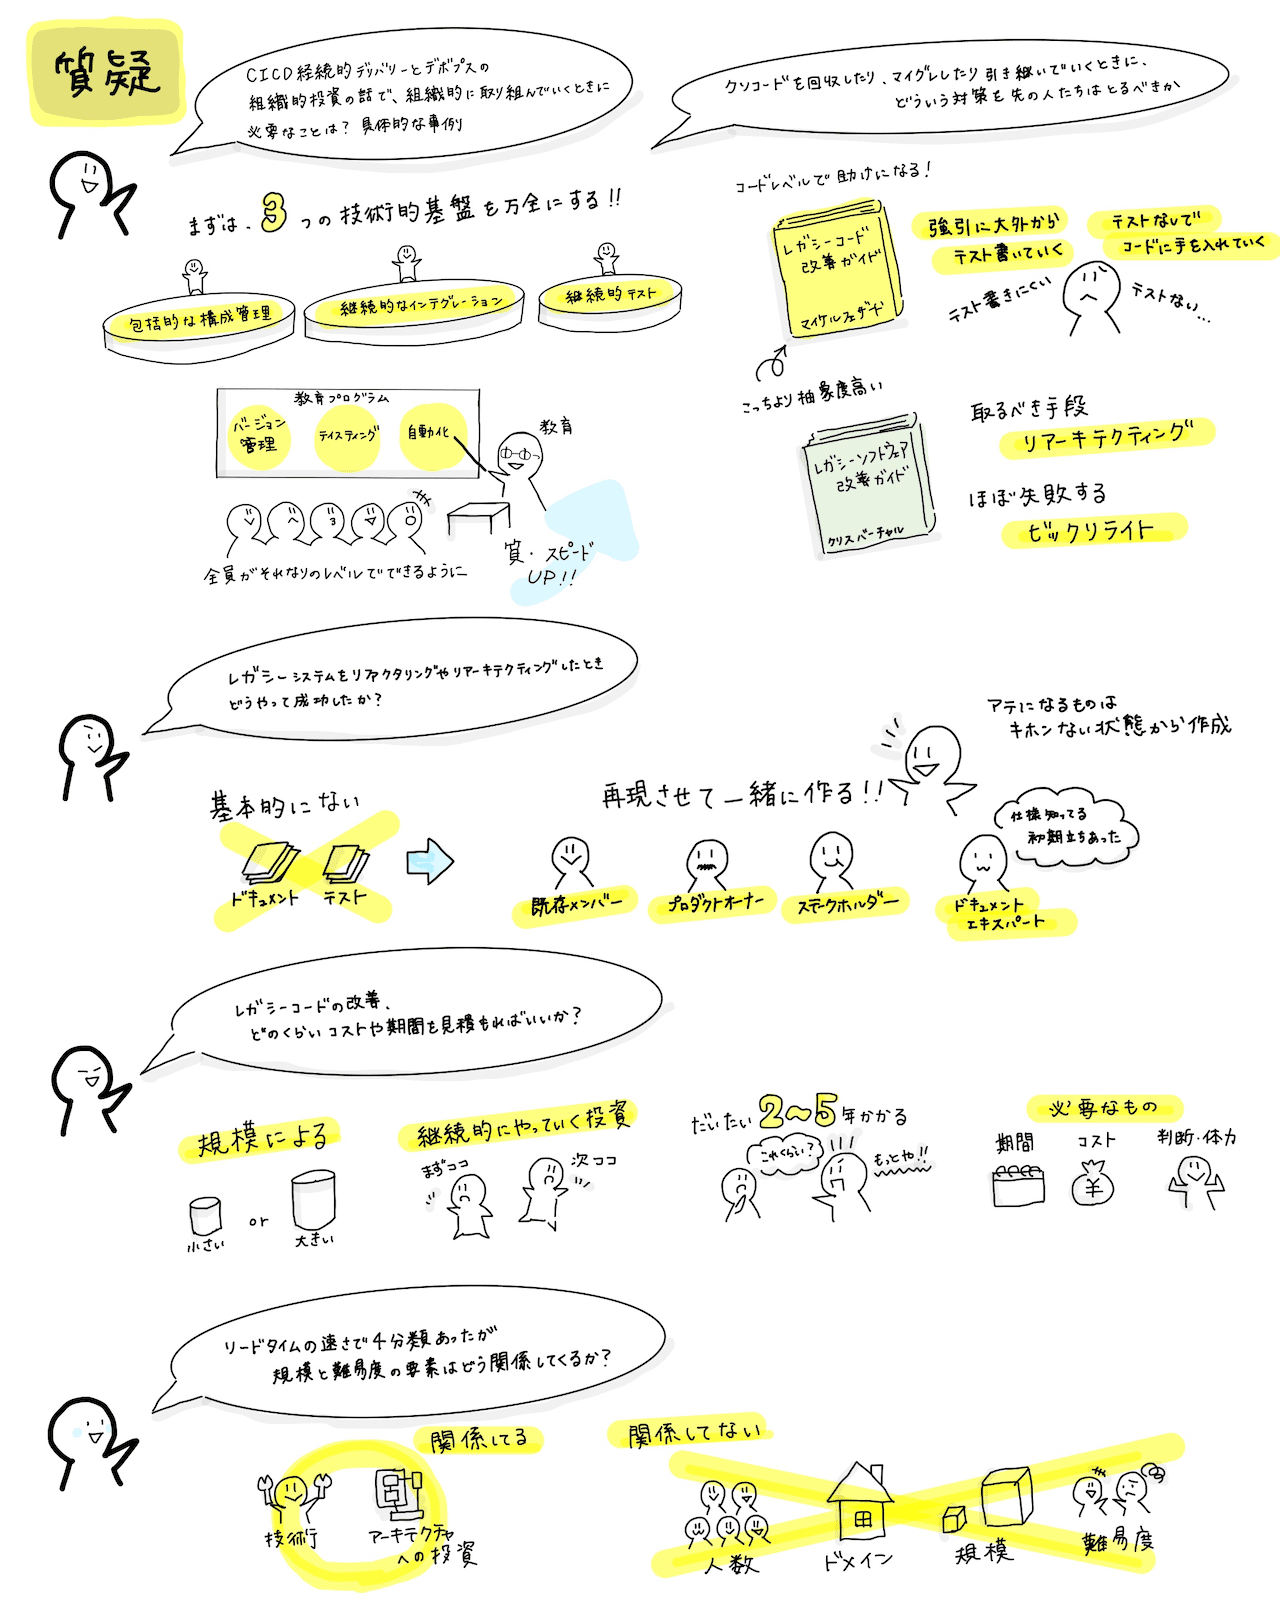 質疑
CICD経続的デリバリーとデボプスの
組織的投資の話で、組織的に取り組んでいくときに
必要なことは？具体的な事例
まずは、3つの技術的基盤を万全にする!!
包括的な構成管理
継続的なインテグレーション
継続的テスト
教育プログラム
バージョン
管理
テイスティング
自動化
教育
全員がそれなりのレベルでできるように
質・スピード
UP!!
クソコードを回収したり、マイグレしたり引き継いでいくときに、
どういう対策を先の人たちはとるべきか
コードレベルで助けになる!
レガシーコード
改善ガイド
マイケルフェザード
強引に大外から
テスト書いていく
テストなしで
コードに手を入れていく
テスト書きにくい
テストない...
こっちより抽象度高い
レガシーソフトウェア
改善ガイド
クリスバーチャル
取るべき手段
リアーキテクティング
ほぼ失敗する
ビックリライト
レガシーシステムをリファクタリングやリアーキテクティングしたとき
どうやって成功したか？
基本的にない
ドキュメント
テスト
再現させて一緒に作る!!
アテになるものは
キホンない状態から作成
仕様知ってる
初期立ちあった
既存メンバー
プロダクトオーナー
ステークホルダー
ドキュメント
エキスパート
レガシーコードの改善、
どのくらいコストや期間を見積もればいいか？
規模による
小さい
or
大きい
継続的にやっていく投資
まずココ
次ココ
だいたい2〜5年かかる
これくらい？
もっとや!!
必要なもの
期間
コスト
判断・体力
¥
リードタイムの速さで4分類あったが
規模と難易度の要素はどう関係してくるか？
関係してる
技術行
アーキテクチャ
への投資
関係してない
人数
ドメイン
規模
難易度